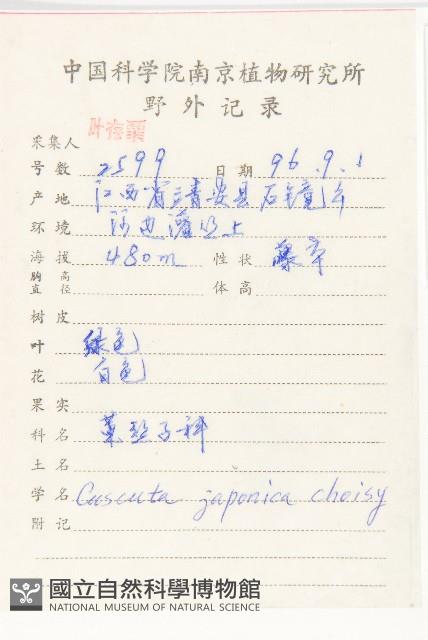 中国科学院南京植物研究所
野外记录
采集人 叶存粟
号数 2599 日期 96.9.1
产地 江西省靖安县石镜乡
环境 河边灌丛上
海拔 480m 性状 藤本
胸高直径 体高
树皮
叶 绿色
花 白色
果实
科名 菟丝子科
土名
学名 Cuscuta japonica choisy
附记
國立自然科學博物館
NATIONAL MUSEUM OF NATURAL SCIENCE